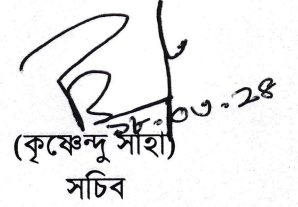 ২৮.০৩.২৪
(কৃষ্ণেন্দু সাহা)
সচিব